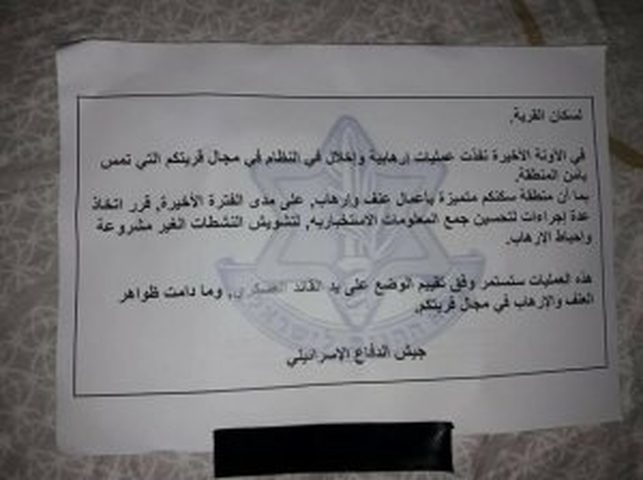 لسكان القرية,
في الآونة الأخيرة نفذت عمليات إرهابية وإخلال في النظام في مجال قريتكم التي تمس
بأمن المنطقة.
بما أن منطقة سكنكم متميزة بأعمال عنف وإرهاب, على مدى الفترة الأخيرة, قرر اتخاذ
عدة إجراءات لتحسين جمع المعلومات الاستخباريه, لتشويش النشطات الغير مشروعة
وإحباط الإرهاب.
هذه العمليات ستستمر وفق تقييم الوضع على يد القائد العسكري, وما دامت ظواهر
العنف والإرهاب في مجال قريتكم.
جيش الدفاع الإسرائيلي